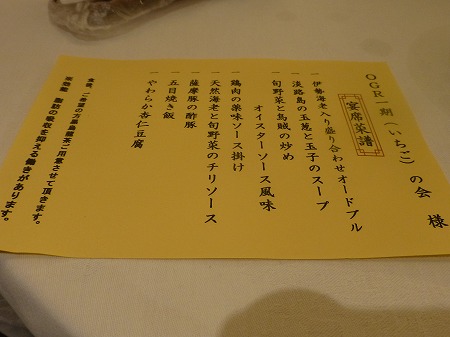 OGR一期(いちご)の会 様
宴席菜譜
一 伊勢海老入り盛り合わせオードブル
一 淡路島の玉葱と玉子のスープ
一 旬野菜と烏賊の炒め
オイスターソース風味
一 鶏肉の薬味ソース掛け
一 天然海老と旬野菜のチリソース
一 薩摩豚の酢豚
一 五目焼き飯
一 やわらか杏仁豆腐
食後、ご希望の方黒烏龍茶ご用意させて頂きます。
脂肪の吸収を抑える働きがあります。